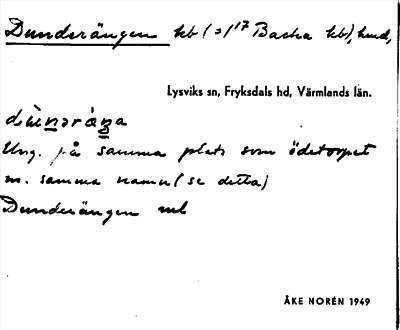 Dunderängen hb (s/17 Backa hb), hmd,
Lysviks sn, Fryksdals hd, Värmlands län.
Ung. på samma plats som ödetorpet
m. samma namn (se detta)
Dunderängen ml
ÅKE NORÉN 1949